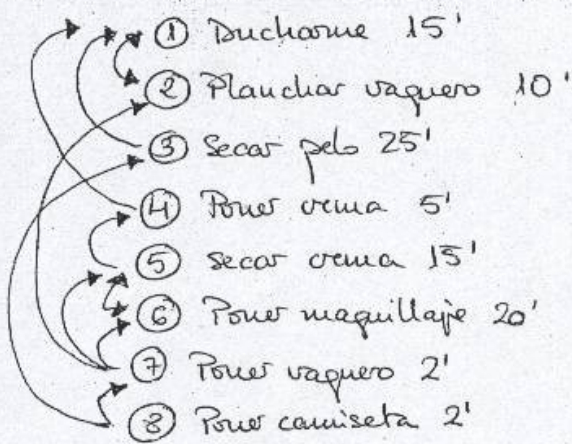 ① Ducharme 15'
② Planchar vaquero 10'
③ Secar pelo 25'
④ Poner crema 5'
⑤ secar crema 15'
⑥ Poner maquillaje 20'
⑦ Poner vaquero 2'
⑧ Poner camiseta 2'